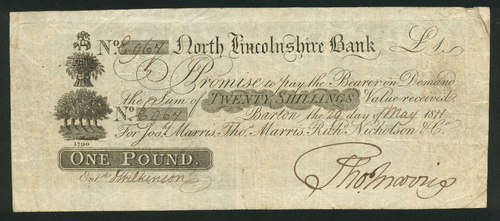 No. North Lincolnshire Bank £1
I Promise to pay the Bearer on Demand
the Sum of TWENTY SHILLINGS Value received
No. Barton the 29 day of May 1811
For Jos. Marris, Thos. Marris, Richd. Nicholson & Co.
1790
ONE POUND.
Entd. J Wilkinson Thos Marris